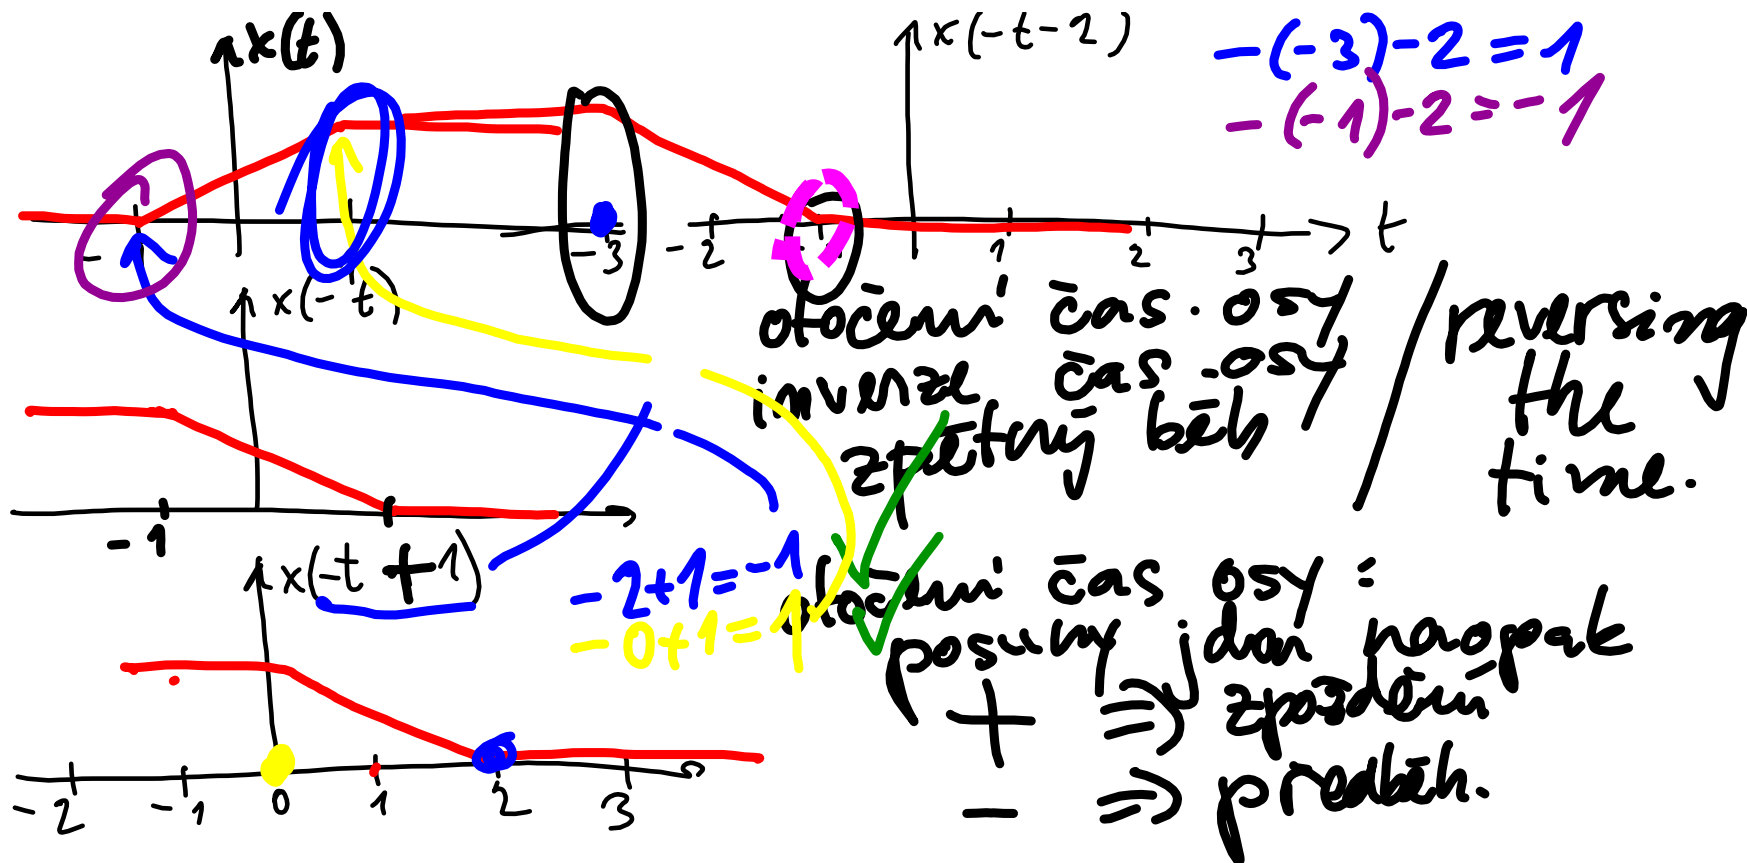 x(t)
x(-t-2)
-(-3)-2=1
-(-1)-2=-1
-3 -2 1 2 3 t
x(-t)
otočení čas. osy / reversing
inverze čas osy the
zpětný běh time.
-1
x(-t+1)
-2+1=-1
-0+1=1
otočení čas osy:
posuny jdou naopak
+ ⇒ zpoždění
- ⇒ předběh.
-2 -1 0 1 2 3